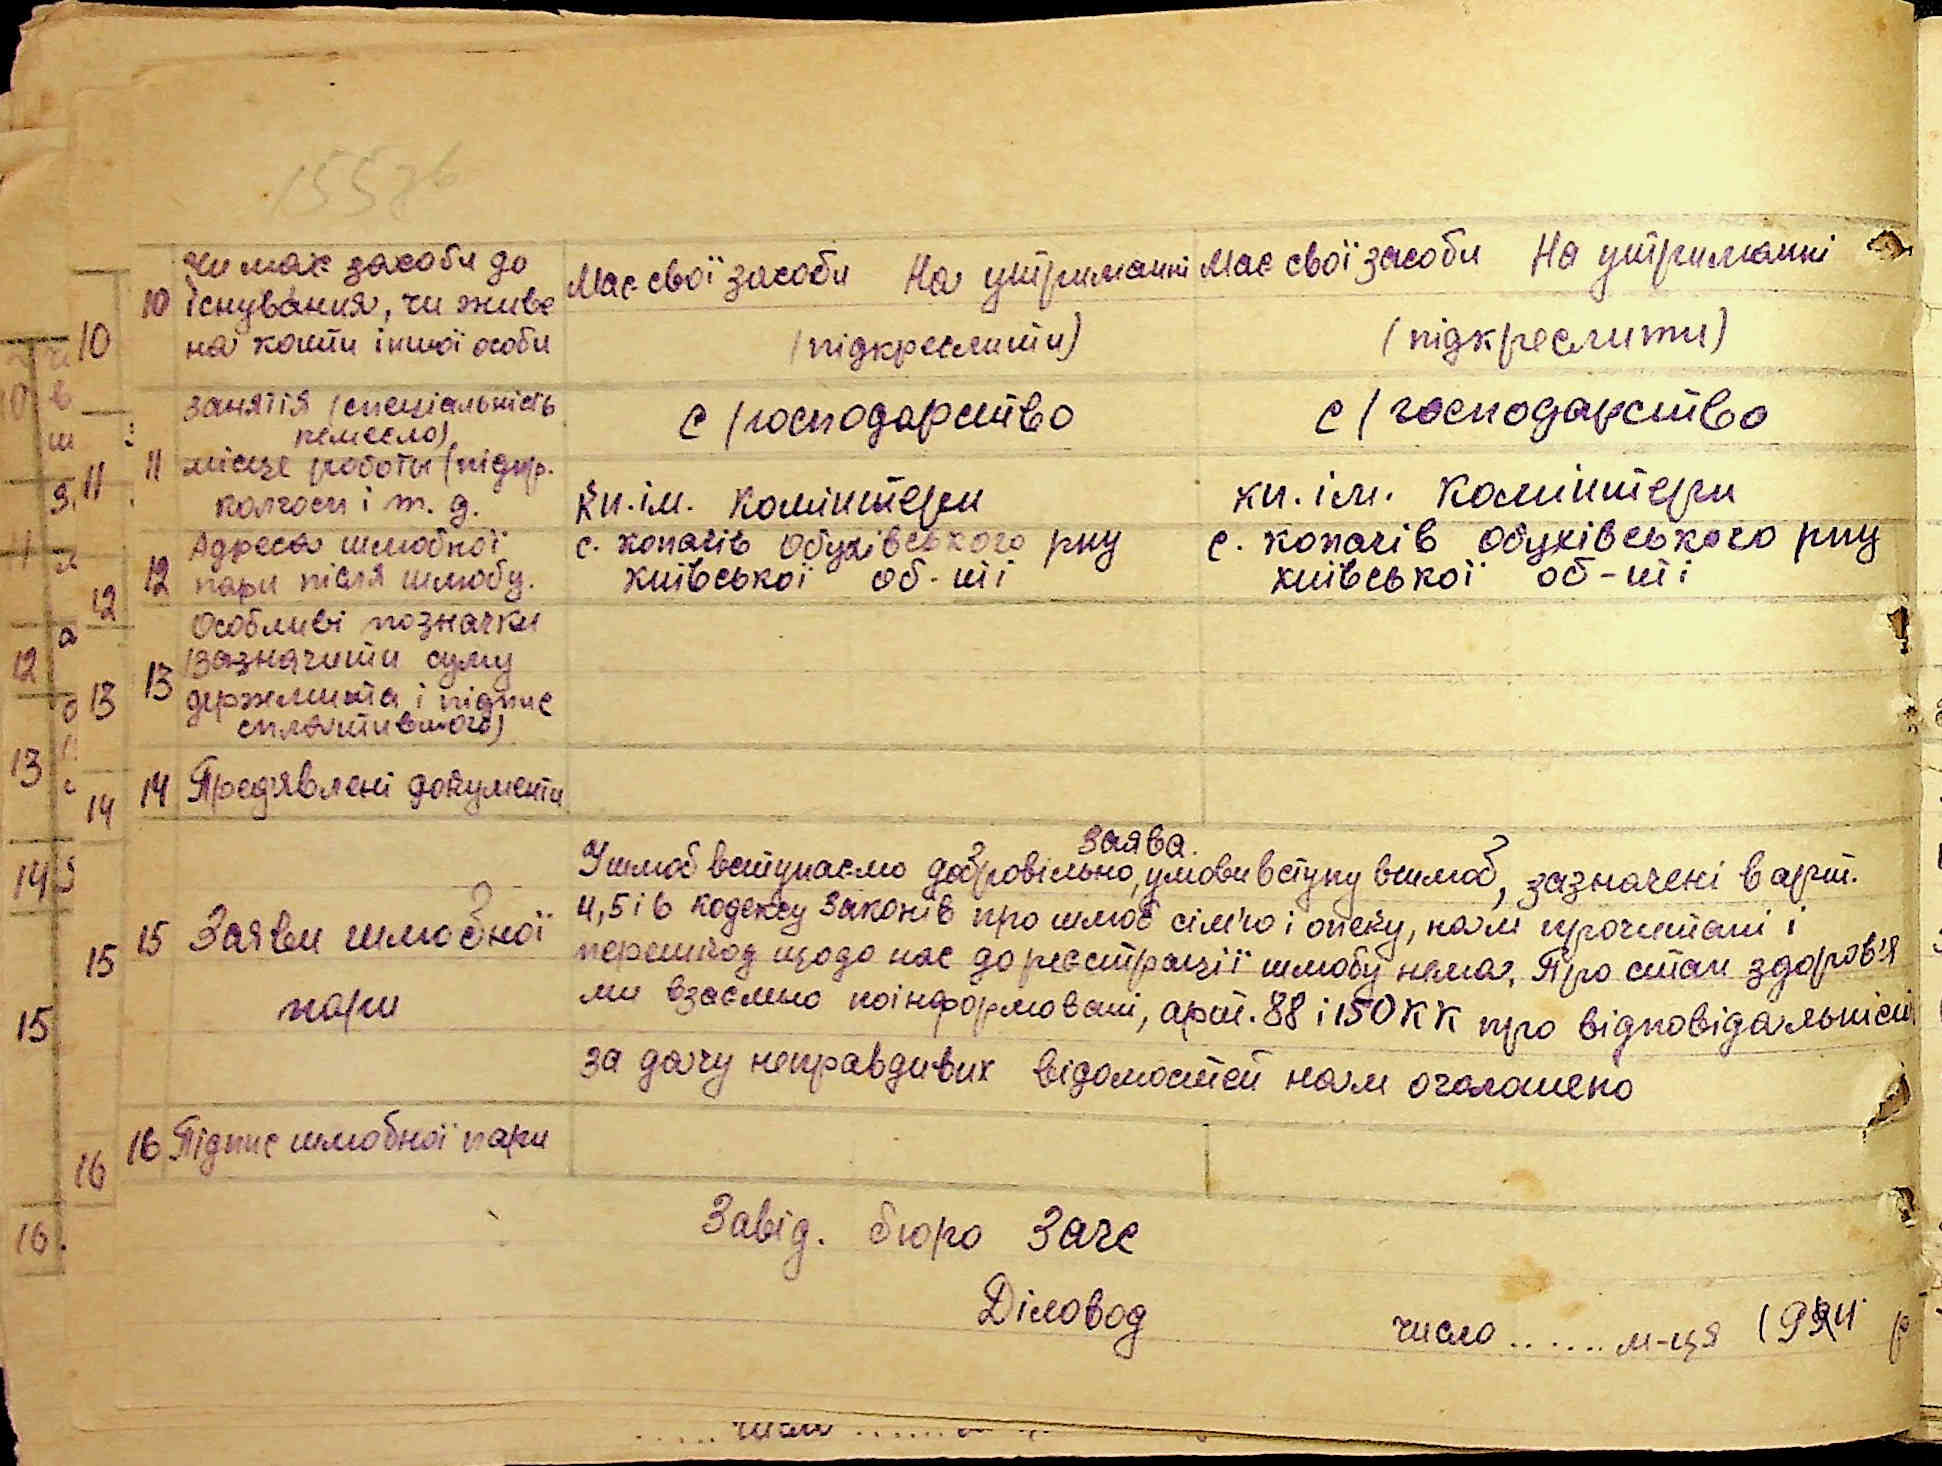 155зв
10 Чи має засоби до існування, чи живе на кошти іншої особи
Має свої засоби На утриманні
(підкреслити)
Має свої засоби На утриманні
(підкреслити)
11 заняття (спеціальність ремесло), місце роботи (підпр. колгосп і т. д.
с/господарство
кп. ім. Комінтерн
с/господарство
кп. ім. Комінтерн
12 Адреса шлюбної пари після шлюбу.
с. Копачів Обухівського рну
Київської об-ті
с. Копачів Обухівського рну
Київської об-ті
13 Особливі позначки (зазначити суму держмита і підпис сплатившого)
14 Пред'явлені документи
15 Заяви шлюбної пари
Заява.
У шлюб вступаємо добровільно, умови вступу в шлюб, зазначені в арт.
4, 5 і 6 кодексу Законів про шлюб сім'ю і опеку, нам прочитані і
перешкод щодо нас до реєстрації шлюбу нема. Про стан здоров'я
ми взаємно поінформовані, арт. 88 і 150 КК про відповідальність
за дачу неправдивих відомостей нам оголошено
16 Підпис шлюбної пари
Завід. бюро Загс
Діловод
число ...... м-ця 1944 р
10
11
12
13
14
15
16
12
13
14
15
16.
..... число ......